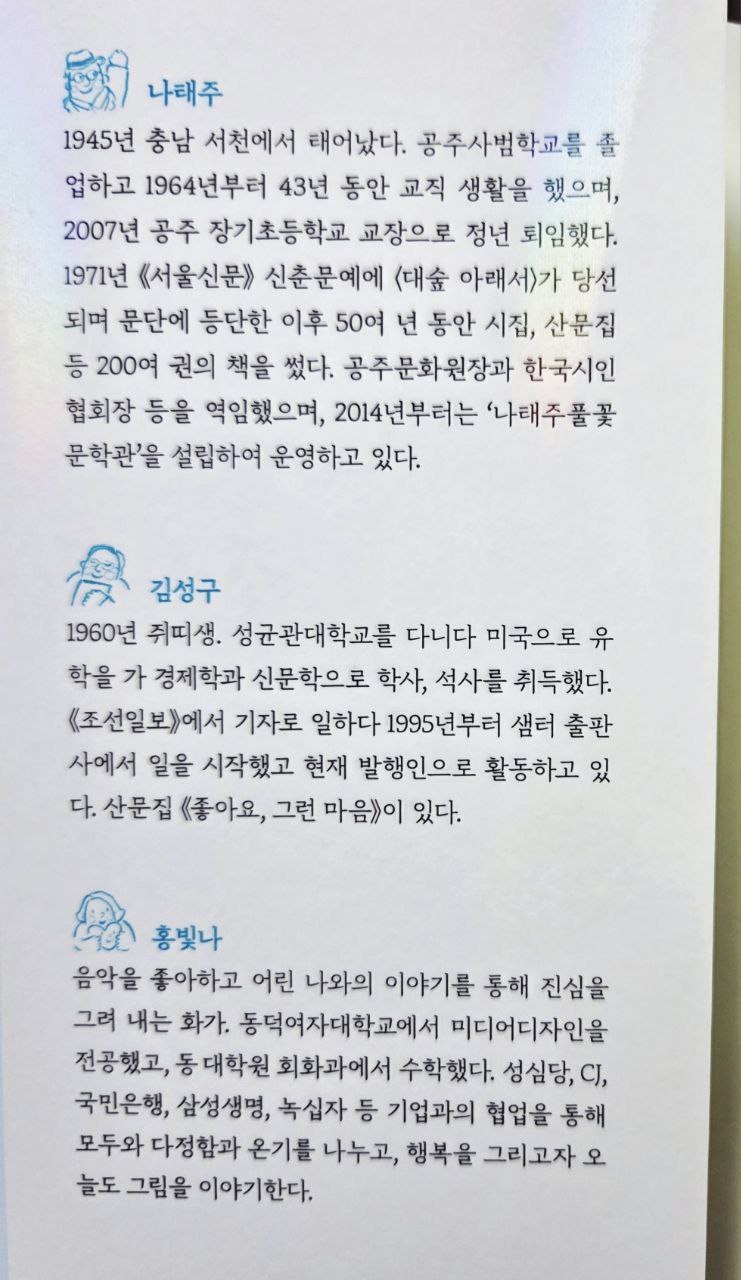 나태주
1945년 충남 서천에서 태어났다. 공주사범학교를 졸
업하고 1964년부터 43년 동안 교직 생활을 했으며,
2007년 공주 장기초등학교 교장으로 정년 퇴임했다.
1971년 《서울신문》 신춘문예에 〈대숲 아래서〉가 당선
되며 문단에 등단한 이후 50여 년 동안 시집, 산문집
등 200여 권의 책을 썼다. 공주문화원장과 한국시인
협회장 등을 역임했으며, 2014년부터는 ‘나태주풀꽃
문학관’을 설립하여 운영하고 있다.
김성구
1960년 쥐띠생. 성균관대학교를 다니다 미국으로 유
학을 가 경제학과 신문학으로 학사, 석사를 취득했다.
《조선일보》에서 기자로 일하다 1995년부터 샘터 출판
사에서 일을 시작했고 현재 발행인으로 활동하고 있
다. 산문집 《좋아요, 그런 마음》이 있다.
홍빛나
음악을 좋아하고 어린 나와의 이야기를 통해 진심을
그려 내는 화가. 동덕여자대학교에서 미디어디자인을
전공했고, 동 대학원 회화과에서 수학했다. 성심당, CJ,
국민은행, 삼성생명, 녹십자 등 기업과의 협업을 통해
모두와 다정함과 온기를 나누고, 행복을 그리고자 오
늘도 그림을 이야기한다.